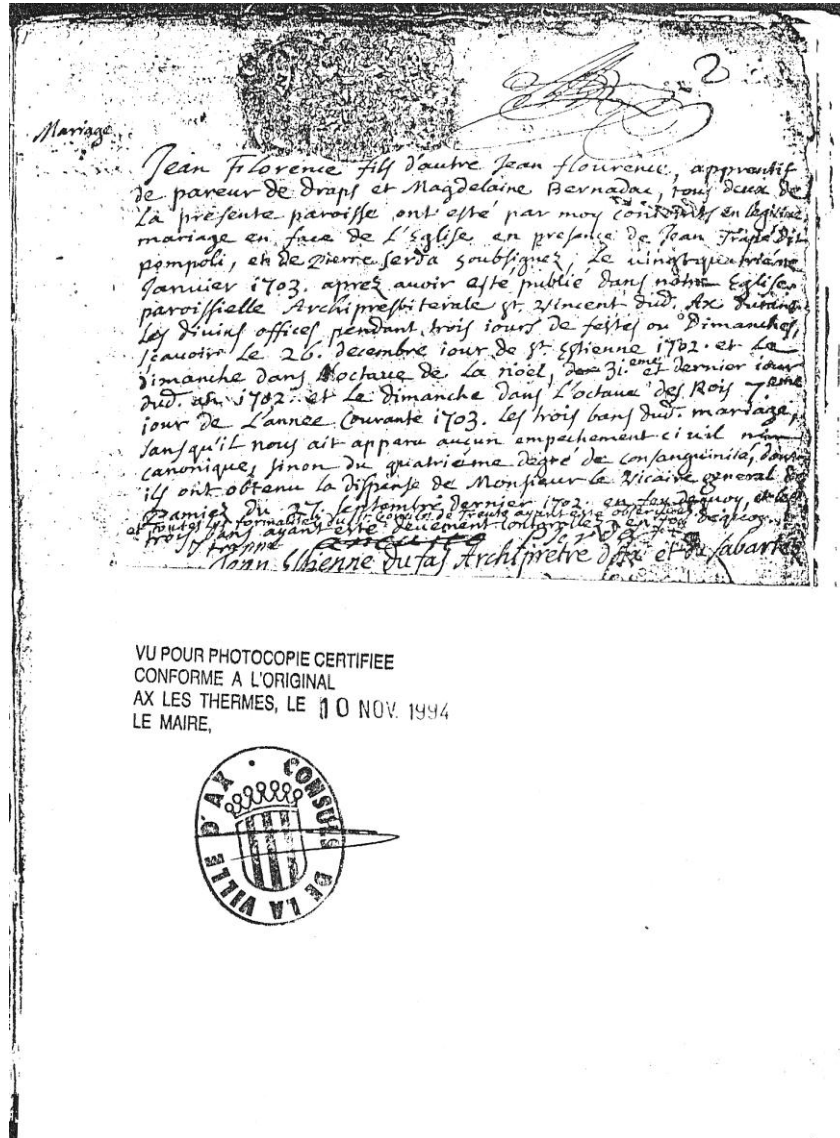 2
Mariage
Jean Florence fils d'autre Jean flourence, apprentif
de pareur de draps et Magdelaine Bernadac, tous deux de
La presente paroisse ont esté par moy conjoints en legitime
mariage en face de L'Eglise en presance de Jean Trape dit
pompoli, et de Pierre Serda soubsignez, Le vingtquatriéme
Janvier 1703. aprez avoir esté publié dans nôtre Eglise
paroissielle Archipresbiterale st. Vincent dud. Ax durant
Les divins offices pendant trois iours de festes ou Dimanches,
scavoir Le 26. decembre iour de st. Estienne 1702. et Le
Dimanche dans L'octave de La noël, 31.eme et dernier iour
dud. an 1702. et Le dimanche dans L'octave des Rois 7.eme
iour de L'année Courante 1703. Les trois bans dud. mariage,
sans qu'il nous ait apparu aucun empechement civil
canonique, sinon du quatriéme degré de consanguinité, dont
ils ont obtenu la dispense de Monsieur le Vicaire general de
Pamiez du 27. septembre dernier 1702. en foy dequoy, et les
et toutes les formalités du Concile de Trente ayant esté observées
trois bans ayant esté deuement controllez en foy dequoy
trappe
Jean Estienne dufas Archiprêtre d'Ax et du sabartez
VU POUR PHOTOCOPIE CERTIFIEE
CONFORME A L'ORIGINAL
AX LES THERMES, LE 10 NOV. 1994
LE MAIRE,
CONSULS DE LA VILLE D'AX